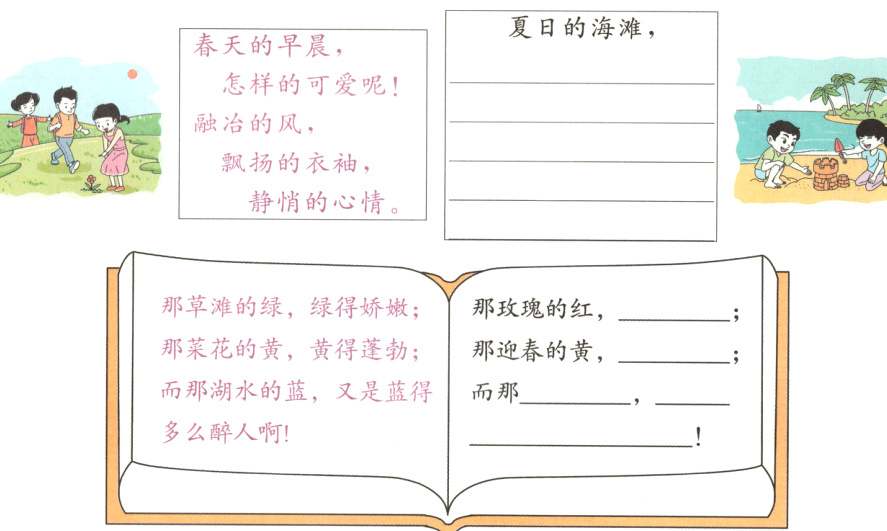 春天的早晨，
怎样的可爱呢！
融冶的风，
飘扬的衣袖，
静悄的心情。
夏日的海滩，
那草滩的绿，绿得娇嫩；
那菜花的黄，黄得蓬勃；
而那湖水的蓝，又是蓝得
多么醉人啊！
那玫瑰的红，__________；
那迎春的黄，__________；
而那__________，_______
____________________！